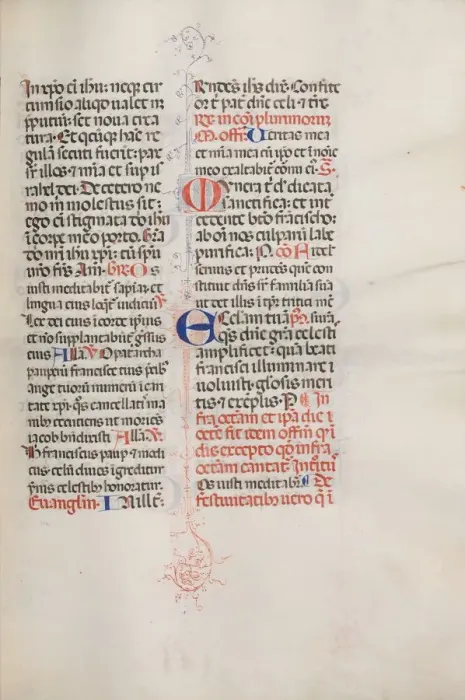 In xpo ei ihu: neqꝫ cir
cumsio aliqd ualet nꝫ
pputiū: set noua crea
tura. Et qcūqꝫ hāc re
gulā secuti fuerit: pax
sr illos: ⁊ mīa et sup is
rahel dei: De cetero ne
mo m molestus sit:
ego ei stigmata dn̄i ihu
ī corpe meo porto. Gra
dn̄i nri ihu xpi: cū spu
uro frs Am̄.
O s
iusti meditabit sapiaꝫ et
lingua eius loqt iudiciū
Lex dei eius ī corde ipius
et nō supplantabūt gressus
eius Alla
O patriarcha
pauperū francisce tuis pcib
auge tuorū numerū ī cari
tate xpi: qs cancellatis ma
nib cecutiens ut moriēs
iacob bn̄dixisti. Alla.
Hic franciscus paup ⁊ modi
cus celū diues īgreditur
ymnis celestib honoratur.
Euanglm. In illo t:
Rndēs ihs dix̄. Confite
or t' pat' dn̄e celi ⁊ tre.
Re. in coi plurimorum
M. offm̄. Ueritas mea
et mīa mea cū ipo et ī noīe
meo exaltabit' cornu eī. S.
Munera t' dn̄e dicata
sanctifica: et int
cedente bto francisco:
ab oī nos culparū labe
purifica: P. co Fidel'
seruus et prudēs quē con
stituit dn̄s sr familiā suā
ut det illis ī tpr tritici mēs
Ecclam tuā
qs dn̄e gra celesti
amplificet: quā beati
francisci illuminare
uoluisti gl'osis meri
tis ⁊ exēplis. P In
fra octam et ipa die
octe fit idem offm̄ qd
dius excepto qd infra
octam cantat Introitu
Os iusti meditabit. De
festiuitatib uero q